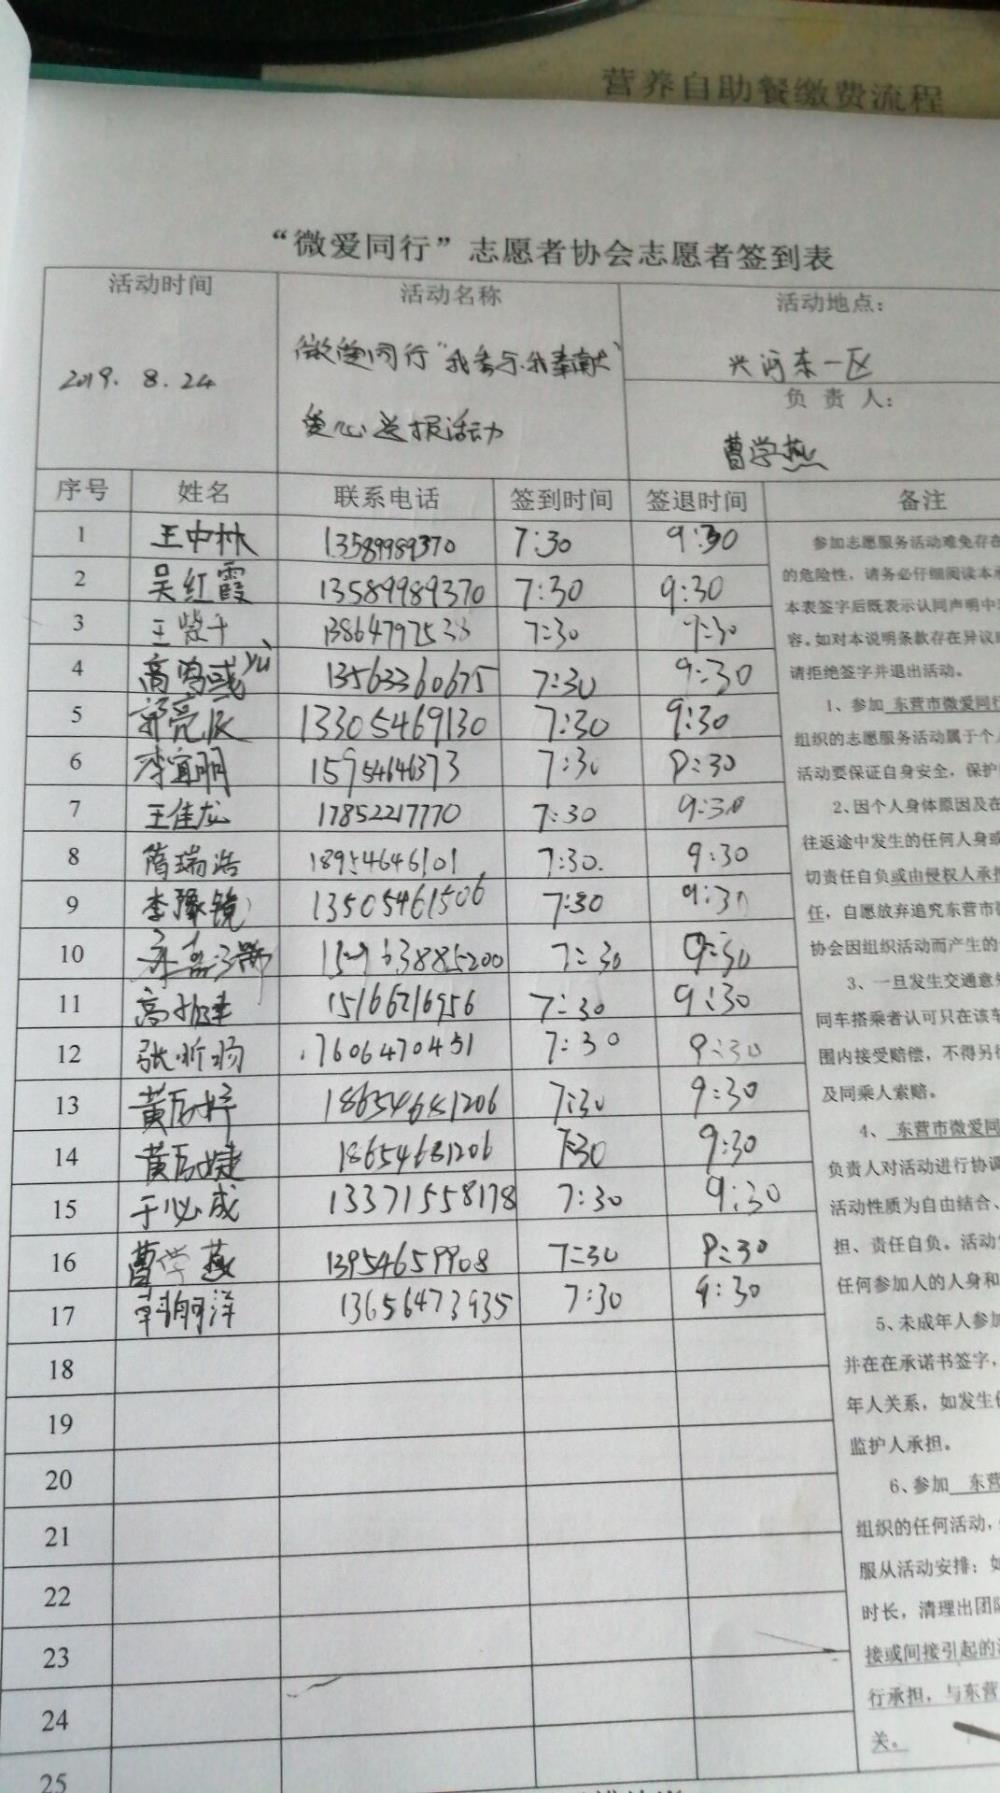 营养自助餐缴费流程
“微爱同行”志愿者协会志愿者签到表
活动时间 活动名称 活动地点:
微爱同行“我参与.我奉献”
2019. 8. 24 兴河东一区
爱心送报活动 负 责 人:
曹学燕
序号 姓名 联系电话 签到时间 签退时间 备注
1 王中林 13589989370 7:30 9:30
2 吴红霞 13589989370 7:30 9:30
3 王 1386479753 7:30 9:30
4 高 yù 13563360675 7:30 9:30
5 郭亮辰 13305469130 7:30 9:30
6 李宜朋 15954646373 7:30 9:30
7 王佳龙 17852217770 7:30 9:30
8 隋瑞浩 18954646101 7:30. 9:30
9 李豫镜 13505461506 7:30 9:30
10 7:30 9:30
11 高 15166216956 7:30 9:30
12 张昕杨 17606470451 7:30 9:30
13 黄 18654681206 7:30 9:30
14 黄 婕 18654681206 7:30 9:30
15 于必成 13371558178 7:30 9:30
16 曹学燕 13954659908 7:30 9:30
17 韩翔洋 13656473935 7:30 9:30
18
19
20
21
22
23
24
25
参加志愿服务活动难免存在
的危险性，请务必仔细阅读本
本表签字后既表示认同声明中
容。如对本说明条款存在异议
请拒绝签字并退出活动。
1、参加 东营市微爱同行
组织的志愿服务活动属于个
活动要保证自身安全，保护
2、因个人身体原因及在
往返途中发生的任何人身或
切责任自负或由侵权人承担
任，自愿放弃追究东营市微
协会因组织活动而产生的
3、一旦发生交通意
同车搭乘者认可只在该车
围内接受赔偿，不得另行
及同乘人索赔。
4、 东营市微爱同
负责人对活动进行协调
活动性质为自由结合、
担、责任自负。活动
任何参加人的人身和
5、未成年人参加
并在在承诺书签字，
年人关系，如发生
监护人承担。
6、参加 东营
组织的任何活动，
服从活动安排；如
时长，清理出团队
接或间接引起的
行承担，与东营
关。